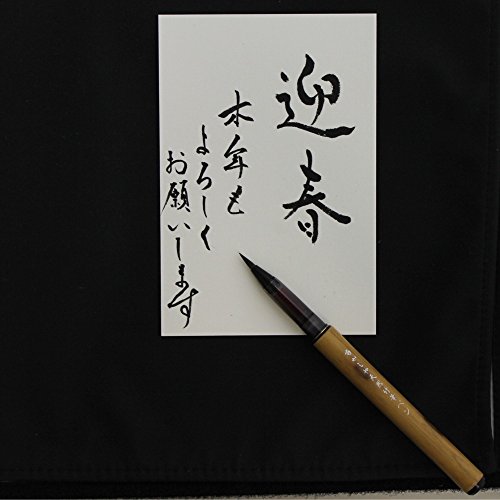 迎春
本年も
よろしく
お願いします